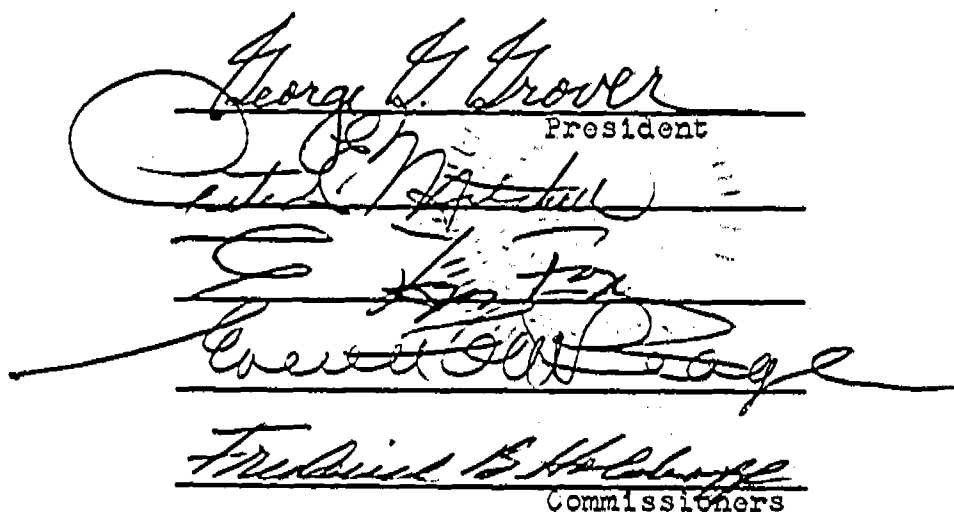 George G. Grover
President
Peter E. Mitchell
E. Lyn Fox
Everett C. McKeage
Frederick B. Holoboff
Commissioners